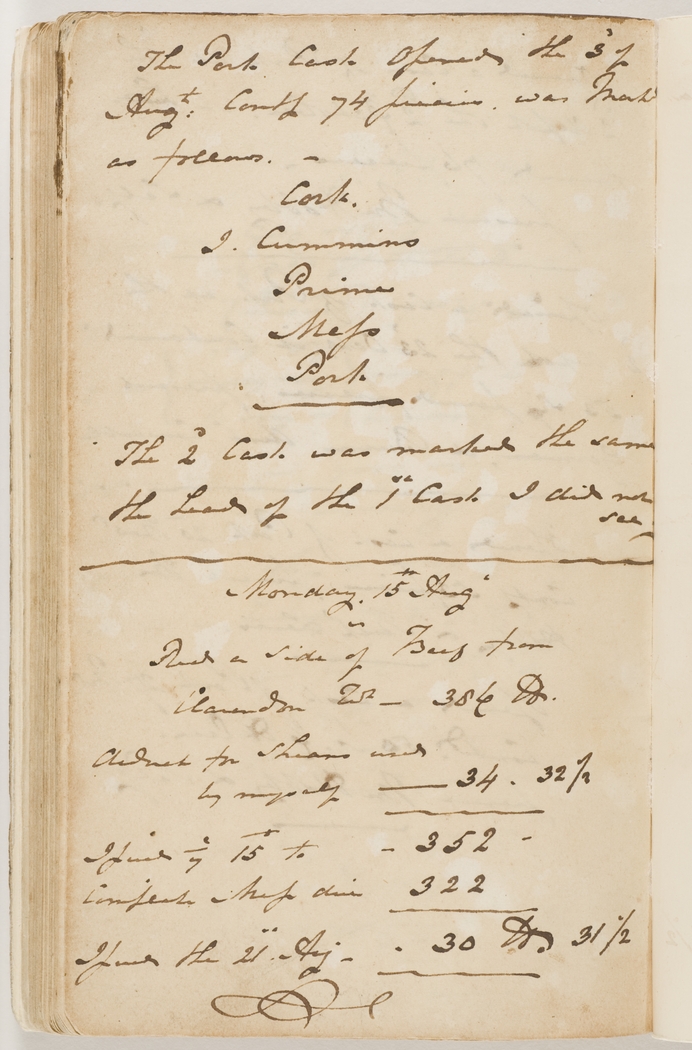 The Pork Cask Opened the 3d of
Augt: Contg 74 pieces. was Markd
as follows. -
Cork.
J. Cummins
Prime
Mess
Pork
The 2d Cask was marked the same
the head of the 1st Cask I did not
see
Monday. 15th Augt
Recd a side of Beef from
Clarendon Wt - 386 lb.
deduct for Shears and
by myself — 34 . 32 1/2
Issued ye 15th to - 352 -
Complete Mess due 322
Issued the 21st. Aug - . 30 lbs 31 1/2